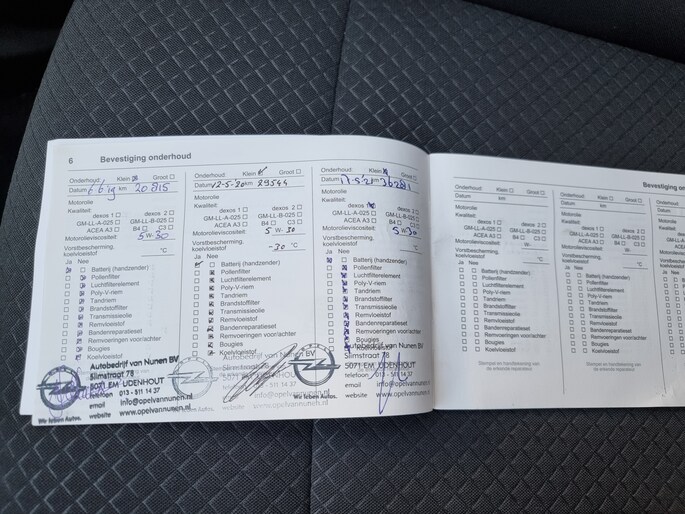 6 Bevestiging onderhoud
Onderhoud: Klein Groot
Datum 6.6.19 km 20.815
Motorolie
Kwaliteit:
dexos 1 dexos 2
GM-LL-A-025 GM-LL-B-025
ACEA A3 B4 C3
Motorolieviscositeit: 5 W-30
Vorstbescherming,
koelvloeistof °C
Ja Nee
Batterij (handzender)
Pollenfilter
Luchtfilterelement
Poly-V-riem
Tandriem
Brandstoffilter
Transmissieolie
Remvloeistof
Bandenreparatieset
Remvoeringen voor/achter
Bougies
Koelvloeistof
Autobedrijf van Nunen BV
Slimstraat 78
5071 EM UDENHOUT
013 - 511 14 37
email info@opelvannunen.nl
website www.opelvannunen.nl
Wir leben Autos.
Onderhoud: Klein Groot
Datum 12-5-20 km 29544
Motorolie
Kwaliteit:
dexos 1 dexos 2
GM-LL-A-025 GM-LL-B-025
ACEA A3 B4 C3
Motorolieviscositeit: 5 W-30
Vorstbescherming,
koelvloeistof -30 °C
Ja Nee
Batterij (handzender)
Pollenfilter
Luchtfilterelement
Poly-V-riem
Tandriem
Brandstoffilter
Transmissieolie
Remvloeistof
Bandenreparatieset
Remvoeringen voor/achter
Bougies
Koelvloeistof
Autobedrijf van Nunen BV
5071 EM
511 14 37
info@opelvannunen.nl
www.opelvannunen.nl
Onderhoud: Klein Groot
Datum km
Motorolie
Kwaliteit:
dexos 1 dexos 2
GM-LL-A-025 GM-LL-B-025
ACEA A3 B4 C3
Motorolieviscositeit: 5 W-30
Vorstbescherming,
koelvloeistof °C
Ja Nee
Batterij (handzender)
Pollenfilter
Luchtfilterelement
Poly-V-riem
Tandriem
Brandstoffilter
Transmissieolie
Remvloeistof
Bandenreparatieset
Remvoeringen voor/achter
Bougies
Koelvloeistof
Autobedrijf van Nunen BV
Slimstraat 78
5071 EM UDENHOUT
telefoon 013 - 511 14 37
email info@opelvannunen.nl
website www.opelvannunen.nl
Wir leben Autos.
Bevestiging on
Onderhoud: Klein Groot
Datum km
Motorolie
Kwaliteit:
dexos 1 dexos 2
GM-LL-A-025 GM-LL-B-025
ACEA A3 B4 C3
Motorolieviscositeit: W-
Vorstbescherming,
koelvloeistof °C
Ja Nee
Batterij (handzender)
Pollenfilter
Luchtfilterelement
Poly-V-riem
Tandriem
Brandstoffilter
Transmissieolie
Remvloeistof
Bandenreparatieset
Remvoeringen voor/achter
Bougies
Koelvloeistof
Stempel en handtekening van
de erkende reparateur
Onderhoud: Klein Groot
Datum km
Motorolie
Kwaliteit:
dexos 1 dexos 2
GM-LL-A-025 GM-LL-B-025
ACEA A3 B4 C3
Motorolieviscositeit: W-
Vorstbescherming,
koelvloeistof °C
Ja Nee
Batterij (handzender)
Pollenfilter
Luchtfilterelement
Poly-V-riem
Tandriem
Brandstoffilter
Transmissieolie
Remvloeistof
Bandenreparatieset
Remvoeringen voor/achter
Bougies
Koelvloeistof
Stempel en handtekening van
de erkende reparateur